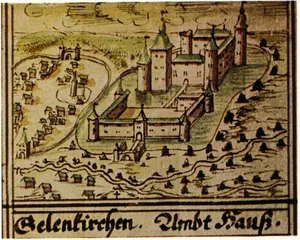 Gelenkirchen. Ambt Hauß.